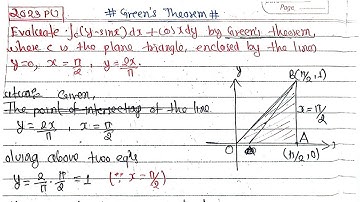 2023 PU
# Green's Theorem #
Page
Evaluate ∫c (y-sinx)dx + cosxdy by Green's theorem,
where c is the plane triangle, enclosed by the lines
y=0, x = π/2, y = 2x/π.
Given,
The point of intersecting of the line
y = 2x/π, x = π/2
olving above two eqls
y = 2/π · π/2 = 1 (∵ x = π/2)
y
B(π/2, 1)
x = π/2
O
A
(π/2, 0)